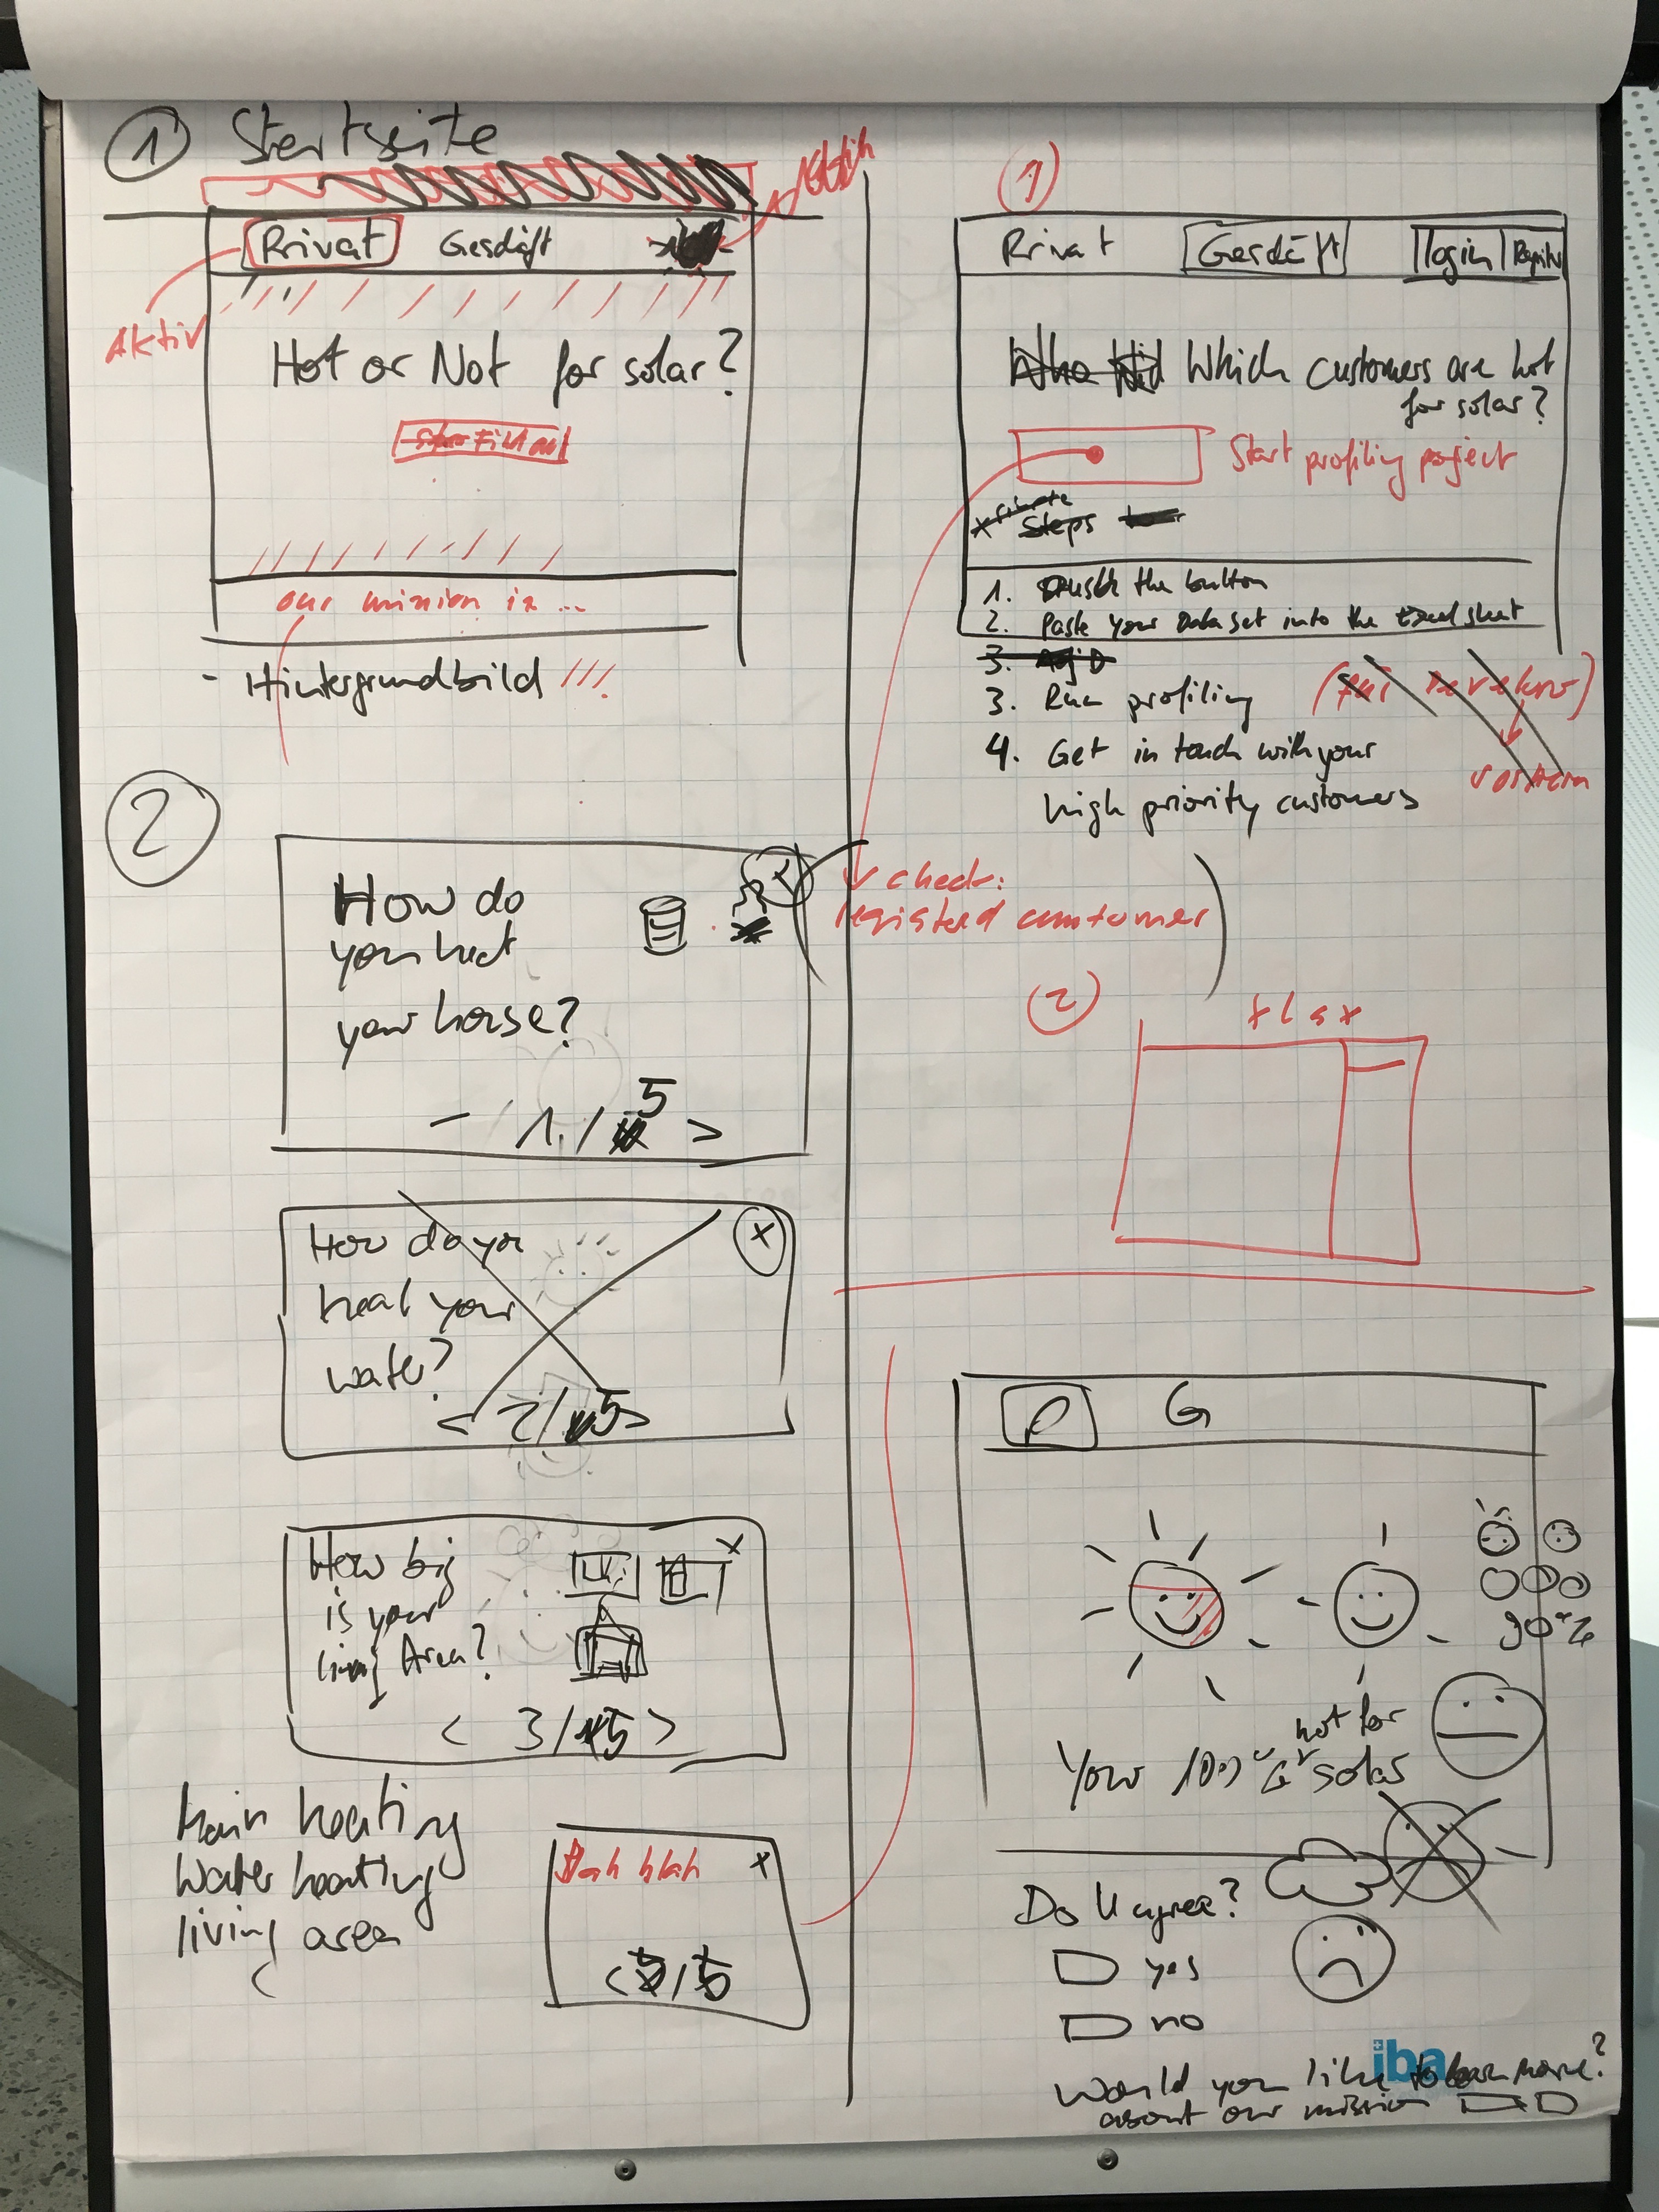 1 Startseite
Privat Geschäft
Aktiv
Hot or Not for solar?
our mission is ...
- Hintergrundbild ///.
2
How do
you heat
your house?
- 1 / 5 >
How do you
heat your
water?
< 2 / 5 >
x
How big
is your
living Area?
x
< 3 / 5 >
Main heating
Water heating
living area
Blah blah x
< 5 / 5
1
Privat Geschäft login
Which customers are hot
for solar?
Start profiling project
private
Steps
1. Push the button
2. Paste your Data set into the Excel sheet
3.
3. Run profiling
4. Get in touch with your
high priority customers
check:
registered customer
2
P G
90%
You 100% hot for
solar
Do U agree?
yes
no
iba
Would you like to learn more?
about our mission